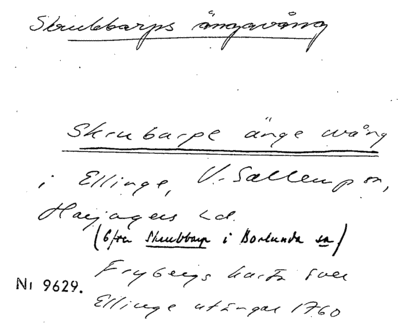 Skrubbarps ängavång
Skrubarpe änge wång
i Ellinge, V. Sallerup sn,
Harjagers hd.
(från Skrubbarp i Borlunda sn)
Frybergs karta över
Ellinge utängar 1760
Nı 9629.